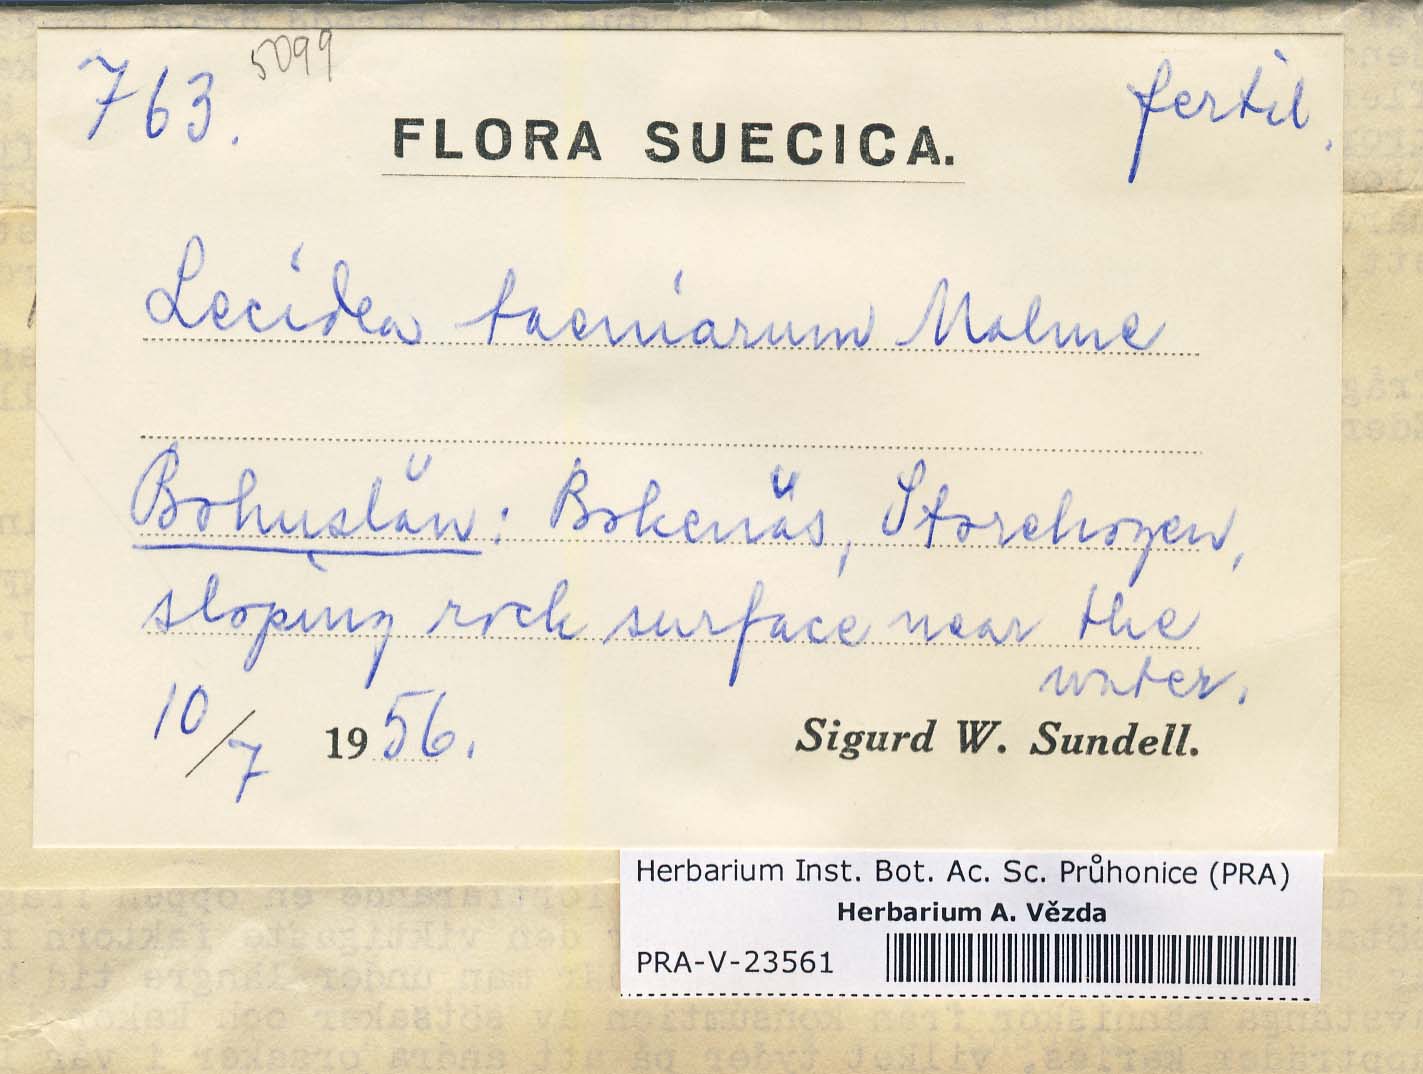 763. 5099 fertil.
FLORA SUECICA.
Lecidea taeniarum Malme
Bohuslän: Bokenäs, Storehogen,
sloping rock surface near the
water.
10/7 1956.
Sigurd W. Sundell.
Herbarium Inst. Bot. Ac. Sc. Průhonice (PRA)
Herbarium A. Vězda
PRA-V-23561